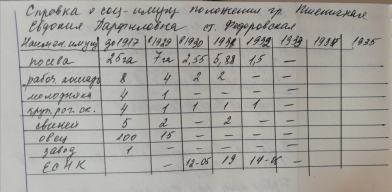 Справка о соц-имущ положении гр. Пшеничная
Евдокия Парфиловна ст. Федоровская
Наимен. имущ до 1917 1929 1930 1931 1932 1933 1934 1935
посева 25га 7га 2,55 5,88 1,5 —
рабоч. лошадь 8 4 2 2 — —
молодняка 4 1 — — — —
круп. рог. ск. 4 1 1 1 1 —
свиней 5 2 — 2 — —
овец 100 15 — — — —
завод 1 — — — — —
ЕСНК — 12-05 19 14-05 —